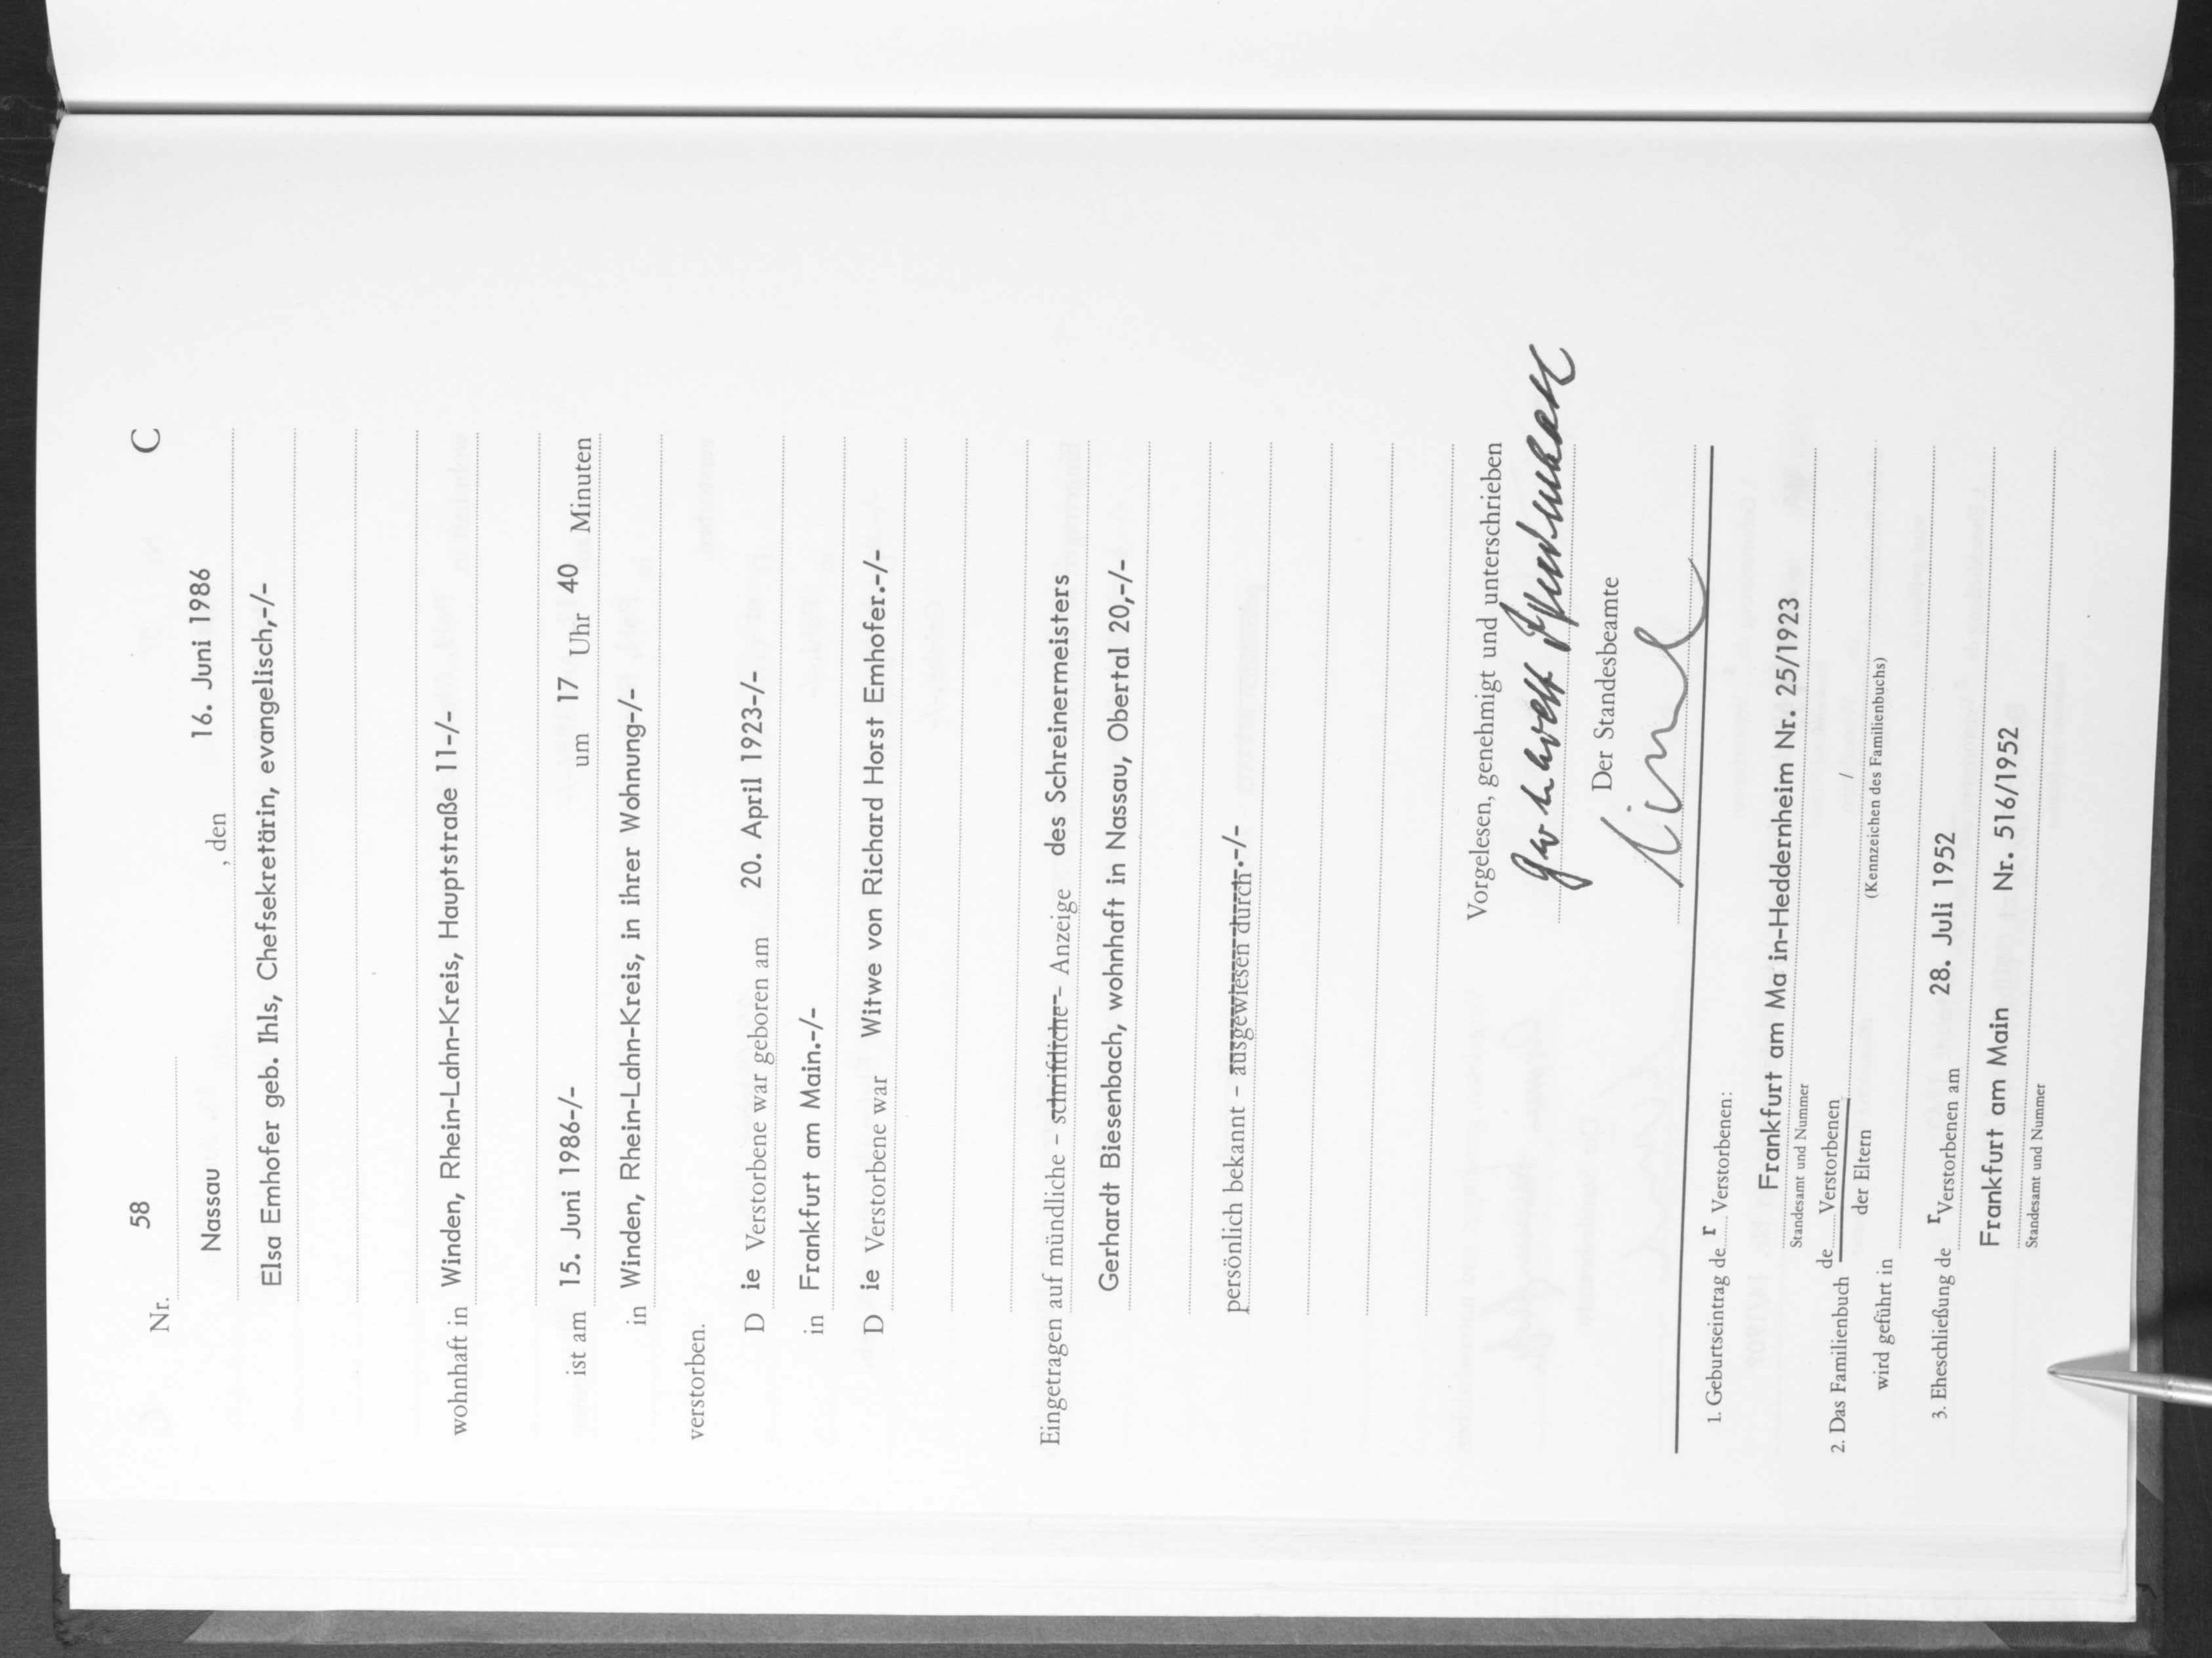 Nr. 58 C
Nassau , den 16. Juni 1986
Elsa Emhofer geb. Ihls, Chefsekretärin, evangelisch,-/-
wohnhaft in Winden, Rhein-Lahn-Kreis, Hauptstraße 11-/-
ist am 15. Juni 1986-/- um 17 Uhr 40 Minuten
in Winden, Rhein-Lahn-Kreis, in ihrer Wohnung-/-
verstorben.
D ie Verstorbene war geboren am 20. April 1923-/-
in Frankfurt am Main.-/-
D ie Verstorbene war Witwe von Richard Horst Emhofer.-/-
Eingetragen auf mündliche - schriftliche - Anzeige des Schreinermeisters
Gerhardt Biesenbach, wohnhaft in Nassau, Obertal 20,-/-
persönlich bekannt - ausgewiesen durch.-/-
Vorgelesen, genehmigt und unterschrieben
Der Standesbeamte
1. Geburtseintrag de r Verstorbenen:
Frankfurt am Main-Heddernheim Nr. 25/1923
Standesamt und Nummer
2. Das Familienbuch de Verstorbenen
der Eltern
/
(Kennzeichen des Familienbuchs)
wird geführt in
3. Eheschließung de r Verstorbenen am 28. Juli 1952
Frankfurt am Main Nr. 516/1952
Standesamt und Nummer